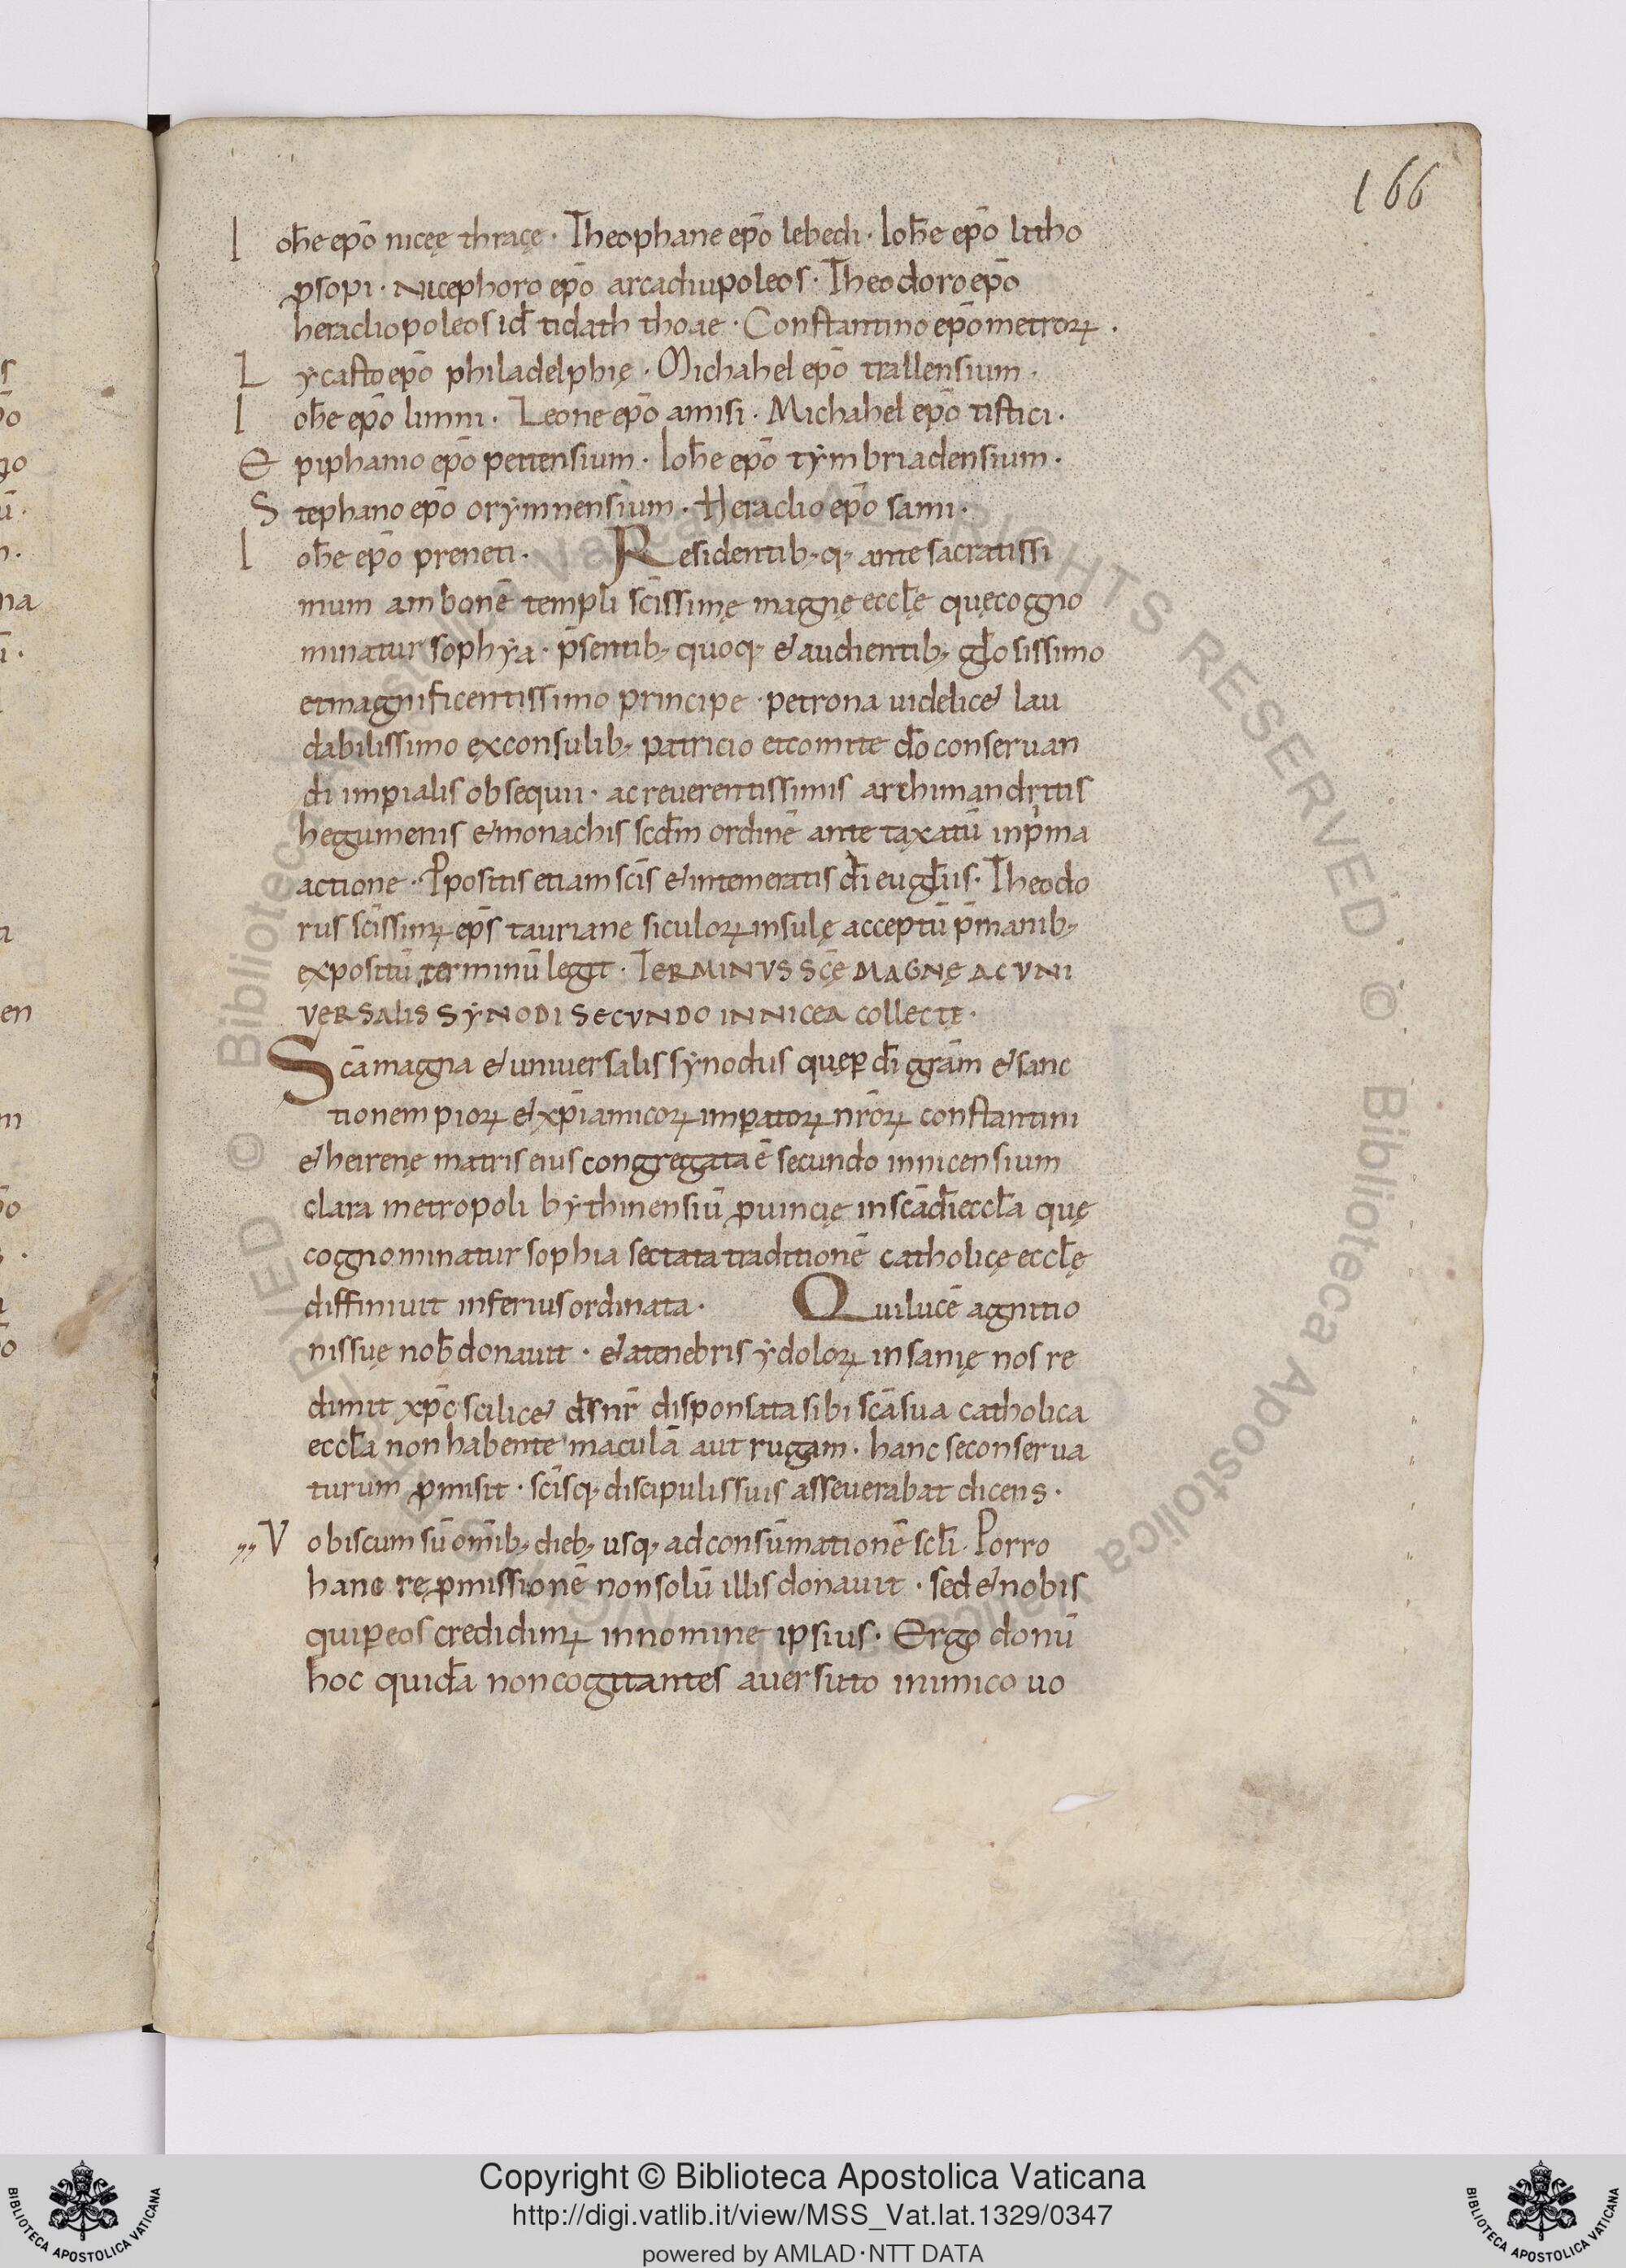 166
Ioh̄e ep̄o niceę thracę · Theophane ep̄o lebedi · Ioh̄e ep̄o litho
ꝓsopi · Nicephoro ep̄o arcadiupoleos · Theodoro ep̄o
heracliopoleos id̄ tidath thoae · Constantino ep̄o metroꝝ ·
Lẏcasto ep̄o philadelphię · Michahel ep̄o trallensium ·
Ioh̄e ep̄o limni · Leone ep̄o amisi · Michahel ep̄o tistici ·
Epiphanio ep̄o pettensium · Ioh̄e ep̄o tẏmbriadensium ·
Stephano ep̄o orẏmnensium · Heraclio ep̄o sami ·
Ioh̄e ep̄o preneti · Residentib; q; ante sacratissi
mum ambonē templi sc̄issimę magnę eccl̄ę quę cogno
minatur sophẏa · p̄sentib; quoq; & audientib; gl̄osissimo
et magnificentissimo principe · petrona uidelic& lau
dabilissimo exconsulib; patricio et comite d̄o conseruan
di imꝑialis obsequii · ac reuerentissimis archimandritis
hegumenis & monachis scd̄m ordinē ante taxatū in pͥma
actione · P̄positis etiam sc̄is & intemeratis d̄i eugl̄iis · Theodo
rus sc̄issimꝰ ep̄s tauriane siculoꝝ insulę acceptū p̄ manib;
expositū terminū legit · TERMINVS SC̄Ę MAGNĘ AC VNI
VERSALIS SẎNODI SECVNDO IN NICEA COLLECTĘ ·
Sc̄a magna & uniuersalis sẏnodus quę ꝑ d̄i gr̄am & sanc
tionem pioꝝ & xp̄i amicoꝝ imꝑatoꝝ nr̄oꝝ constantini
& heirenę matris eius congregata ē secundo in nicensium
clara metropoli bẏthinensiū ꝓuincię in sc̄a d̄i eccl̄a quę
cognominatur sophia sectata traditionē catholicę eccl̄ę
diffiniuit inferius ordinata · Qui lucē agnitio
nis suę nob̄ donauit · & a tenebris ẏdoloꝝ insanię nos re
dimit xp̄c scilic& d̄s nr̄ disponsata sibi sc̄a sua catholica
eccl̄a non habente maculā aut rugam · hanc se conserua
turum ꝓmisit · sc̄isq; discipulis suis asseuerabat dicens ·
,, Vobiscum sū om̄ib; dieb; usq; ad consūmationē scl̄i · Porro
hanc reꝓmissionē non solū illis donauit · sed & nobis
qui ꝑ eos credidimꝰ in nomine ipsius · Ergo donū
hoc quid̄a non cogitantes a uersuto inimico uo
Copyright © Biblioteca Apostolica Vaticana
http://digi.vatlib.it/view/MSS_Vat.lat.1329/0347
powered by AMLAD·NTT DATA